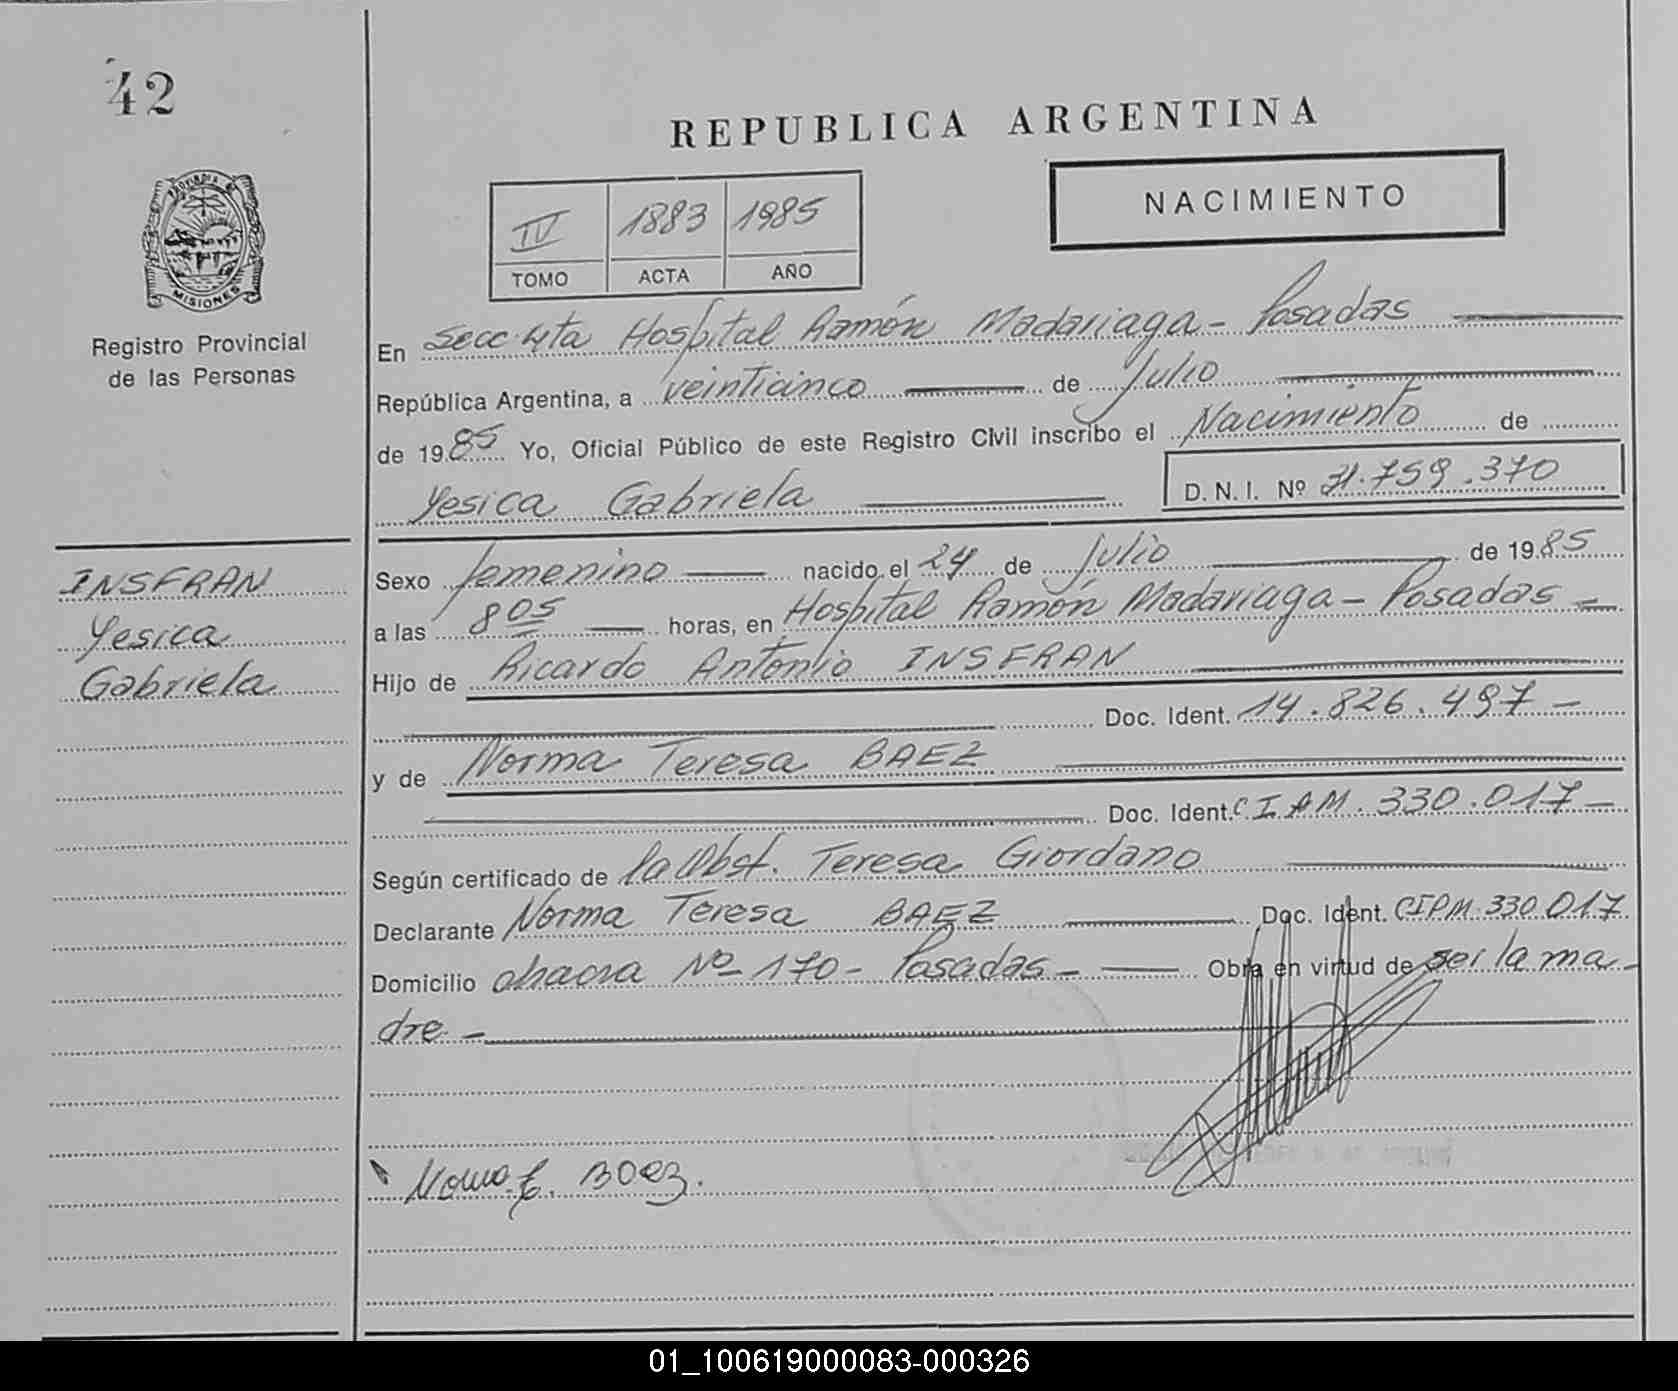 42
REPUBLICA ARGENTINA
NACIMIENTO
IV 1883 1985
TOMO ACTA AÑO
PROVINCIA DE
MISIONES
Registro Provincial
de las Personas
En Secc. 4ta Hospital Ramón Madariaga - Posadas
República Argentina, a veinticinco de Julio
de 1985 Yo, Oficial Público de este Registro Civil inscribo el Nacimiento de
Yesica Gabriela D.N.I. Nº 31.759.370
INSFRAN
Yesica
Gabriela
Sexo femenino nacido el 24 de Julio de 1985
a las 8 05 horas, en Hospital Ramón Madariaga - Posadas -
Hijo de Ricardo Antonio INSFRAN
Doc. Ident. 14.826.497 -
y de Norma Teresa BAEZ
Doc. Ident. C.I.A.M. 330.017 -
Según certificado de la Obst. Teresa Giordano
Declarante Norma Teresa BAEZ Doc. Ident. CIPM. 330.017
Domicilio chacra Nº 170 - Posadas - Obra en virtud de ser la ma-
dre -
01_100619000083-000326